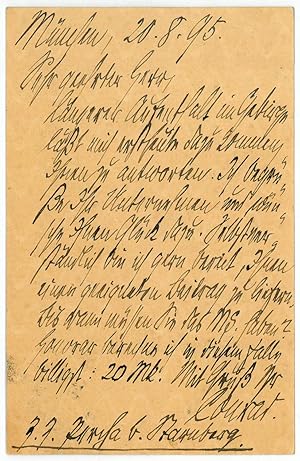 München, 20. 8. 95.
Sehr geehrter Herr,
Längerer Aufenthalt im Gebirge
läßt mich erst heute dazu kommen,
Ihnen zu antworten. Ich begrü-
ße Ihr Unternehmen und wün-
sche Ihnen Glück dazu. Selbstver-
ständlich bin ich gern bereit, Ihnen
einen geeigneten Beitrag zu liefern.
Bis wann müßen Sie das MS. haben?
Honorar berechne ich in diesem Falle
billigst: 20 Mk. Mit Gruß Ihr
Conrad.
z. Z. Percha b. Starnberg.